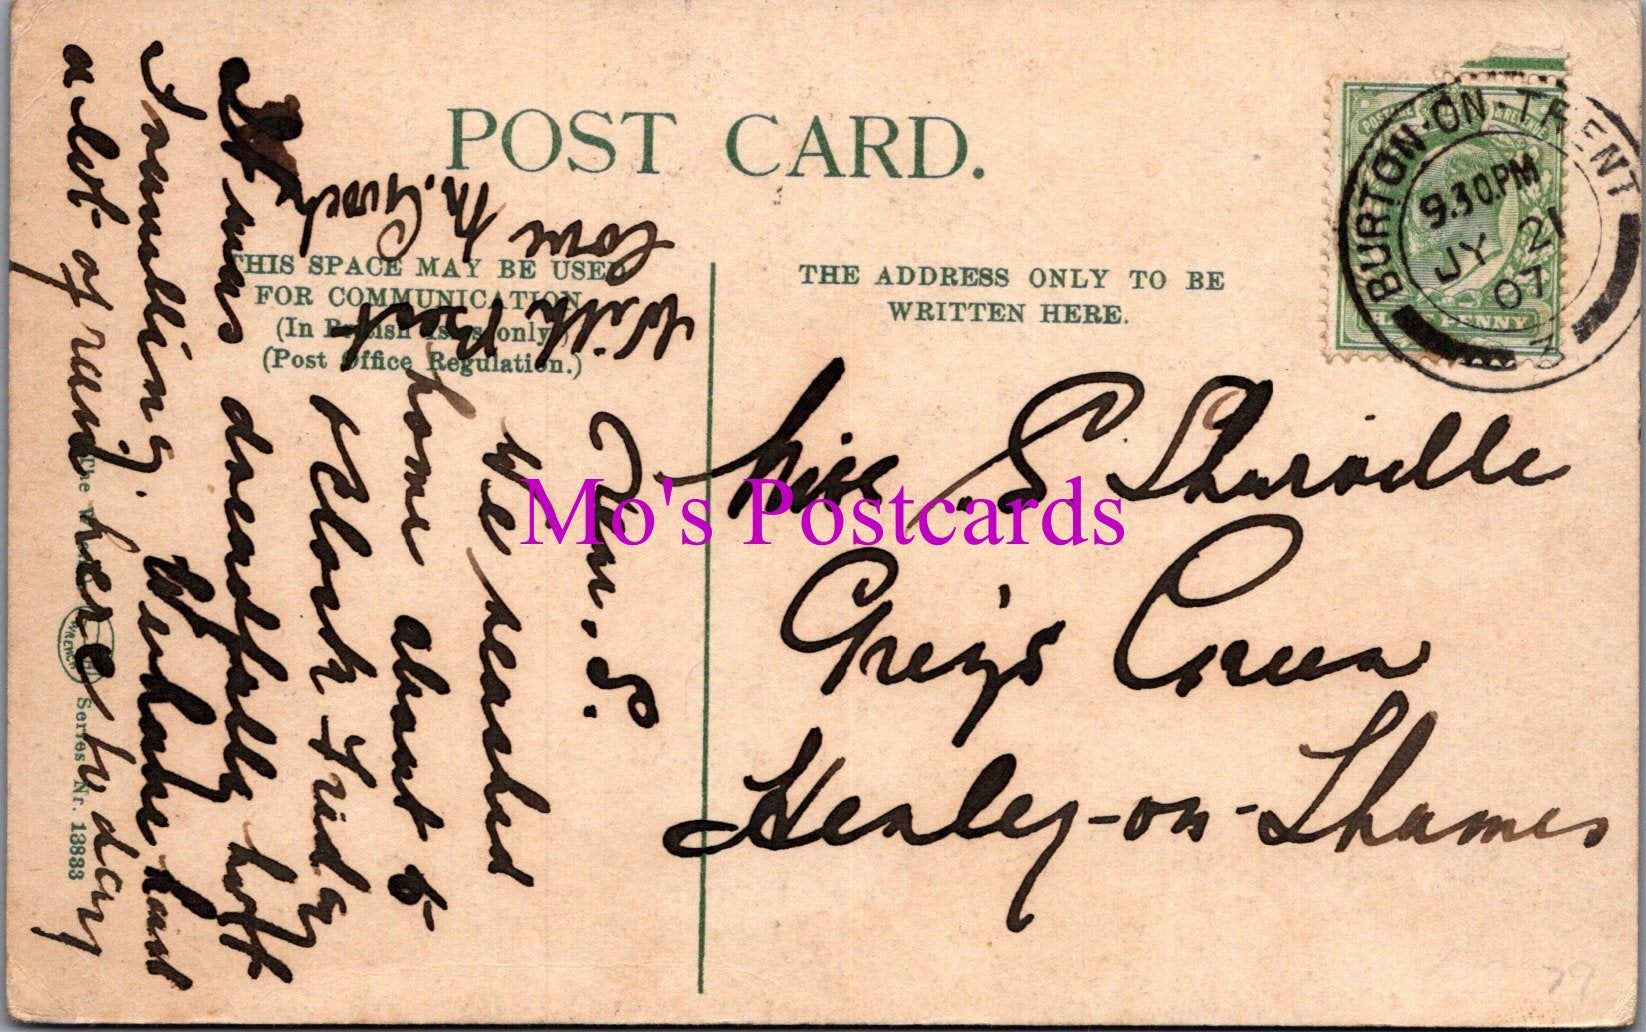 POST CARD.
THIS SPACE MAY BE USED
FOR COMMUNICATION
(In British Isles only.)
(Post Office Regulation.)
THE ADDRESS ONLY TO BE
WRITTEN HERE.
BURTON-ON-TRENT
9.30PM
JY 21
07
HALF PENNY
Miss E Sharville
Greys Green
Henley-on-Thames
Dear S.
We reached
home about 5
o'clock Friday
It was dreadfully hot
travelling. We have had
a lot of rain here to day
With best
love
M. Gooch
The Wrench Series Nr. 13833
Mo's Postcards